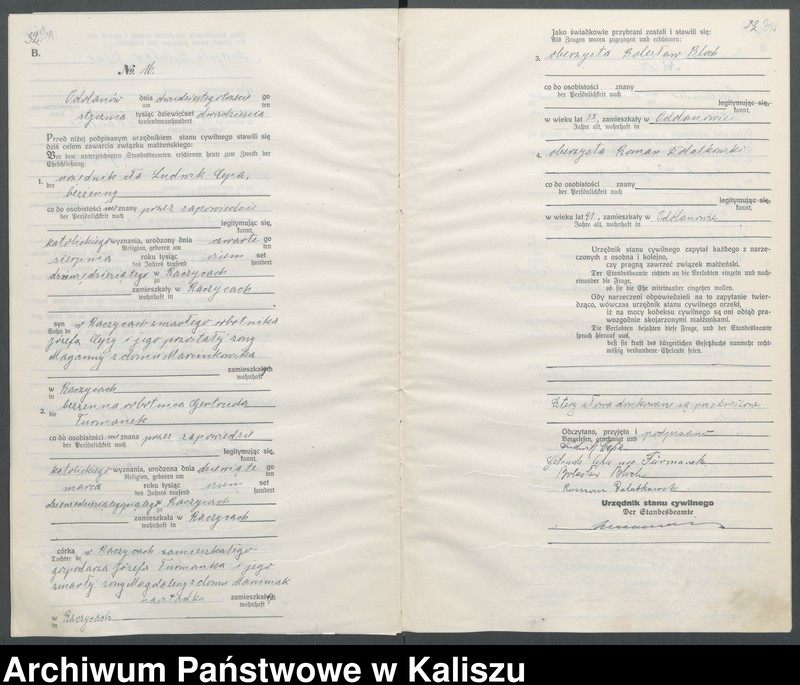 B.
No. 16.
Odolanów dnia dwudziestego trzeciego
am ten
stycznia tysiąc dziewięćset dwudziestego
tausendneunhundert
Przed niżej podpisanym urzędnikiem stanu cywilnego stawili się
dziś celem zawarcia związku małżeńskiego:
Vor dem unterzeichneten Standesbeamten erschienen heute zum Zwecke der
Eheschließung:
1. urzędnik Ludwik Cepa,
der
bezżenny
co do osobistości znany przez zapowiedzie
der Persönlichkeit nach
legitymując się,
kannt,
katolickiego wyznania, urodzony dnia czwartego
Religion, geboren am ten
sierpnia roku tysiąc ośem set
des Jahres tausend hundert
dziewięćdziesiątego w Raczycach
zu
zamieszkały w Raczycach
wohnhaft in
syn w Raczycach zmarłego robotnika
Sohn de
Józefa Cepy i jego pozostałej żony
Maryanny z domu
zamieszkałych
wohnhaft
w Raczycach
in
2. bezżenna robotnica Gertruda
die
Furmanek
co do osobistości znana przez zapowiedzie
der Persönlichkeit nach
legitymując się,
kannt,
katolickiego wyznania, urodzona dnia dziewiątego
Religion, geboren am ten
marca roku tysiąc ośem set
des Jahres tausend hundert
w Raczycach
zu
zamieszkała w Raczycach
wohnhaft in
córka w Raczycach zamieszkałego
Tochter de
gospodarza Józefa Furmanka i jego
zmarłej żony Magdaleny z domu Marciniak
zamieszkał
wohnhaft
w Raczycach
in
Jako świadkowie przybrani zostali i stawili się:
Als Zeugen waren zugezogen und erschienen:
3. oberzysta Bolesław Bloch
co do osobistości znany
der Persönlichkeit nach
legitymując się,
kannt,
w wieku lat 38, zamieszkały w Odolanowie
Jahre alt, wohnhaft in
4. oberzysta Roman
co do osobistości znany
der Persönlichkeit nach
legitymując się,
kannt,
w wieku lat 41, zamieszkały w Odolanowie
Jahre alt, wohnhaft in
Urzędnik stanu cywilnego zapytał każdego z narze-
czonych z osobna i kolejno,
czy pragną zawrzeć związek małżeński.
Der Standesbeamte richtete an die Verlobten einzeln und nach-
einander die Frage,
ob sie die Ehe miteinander eingehen wollen.
Gdy narzeczeni odpowiedzieli na to zapytanie twier-
dząco, wówczas urzędnik stanu cywilnego orzekł,
iż na mocy kodeksu cywilnego są oni odtąd pra-
wozgodnie skojarzonymi małżonkami.
Die Verlobten bejahten diese Frage, und der Standesbeamte
sprach hierauf aus,
daß sie kraft des bürgerlichen Gesetzbuchs nunmehr recht-
mäßig verbundene Eheleute seien.
Cztery słowa drukowane są przekreślone
Odczytano, przyjęto i podpisano
Vorgelesen, genehmigt und
Ludwig Cepa
Cepa Furmanek
Bolesław Bloch
Roman
Urzędnik stanu cywilnego
Der Standesbeamte
Archiwum Państwowe w Kaliszu